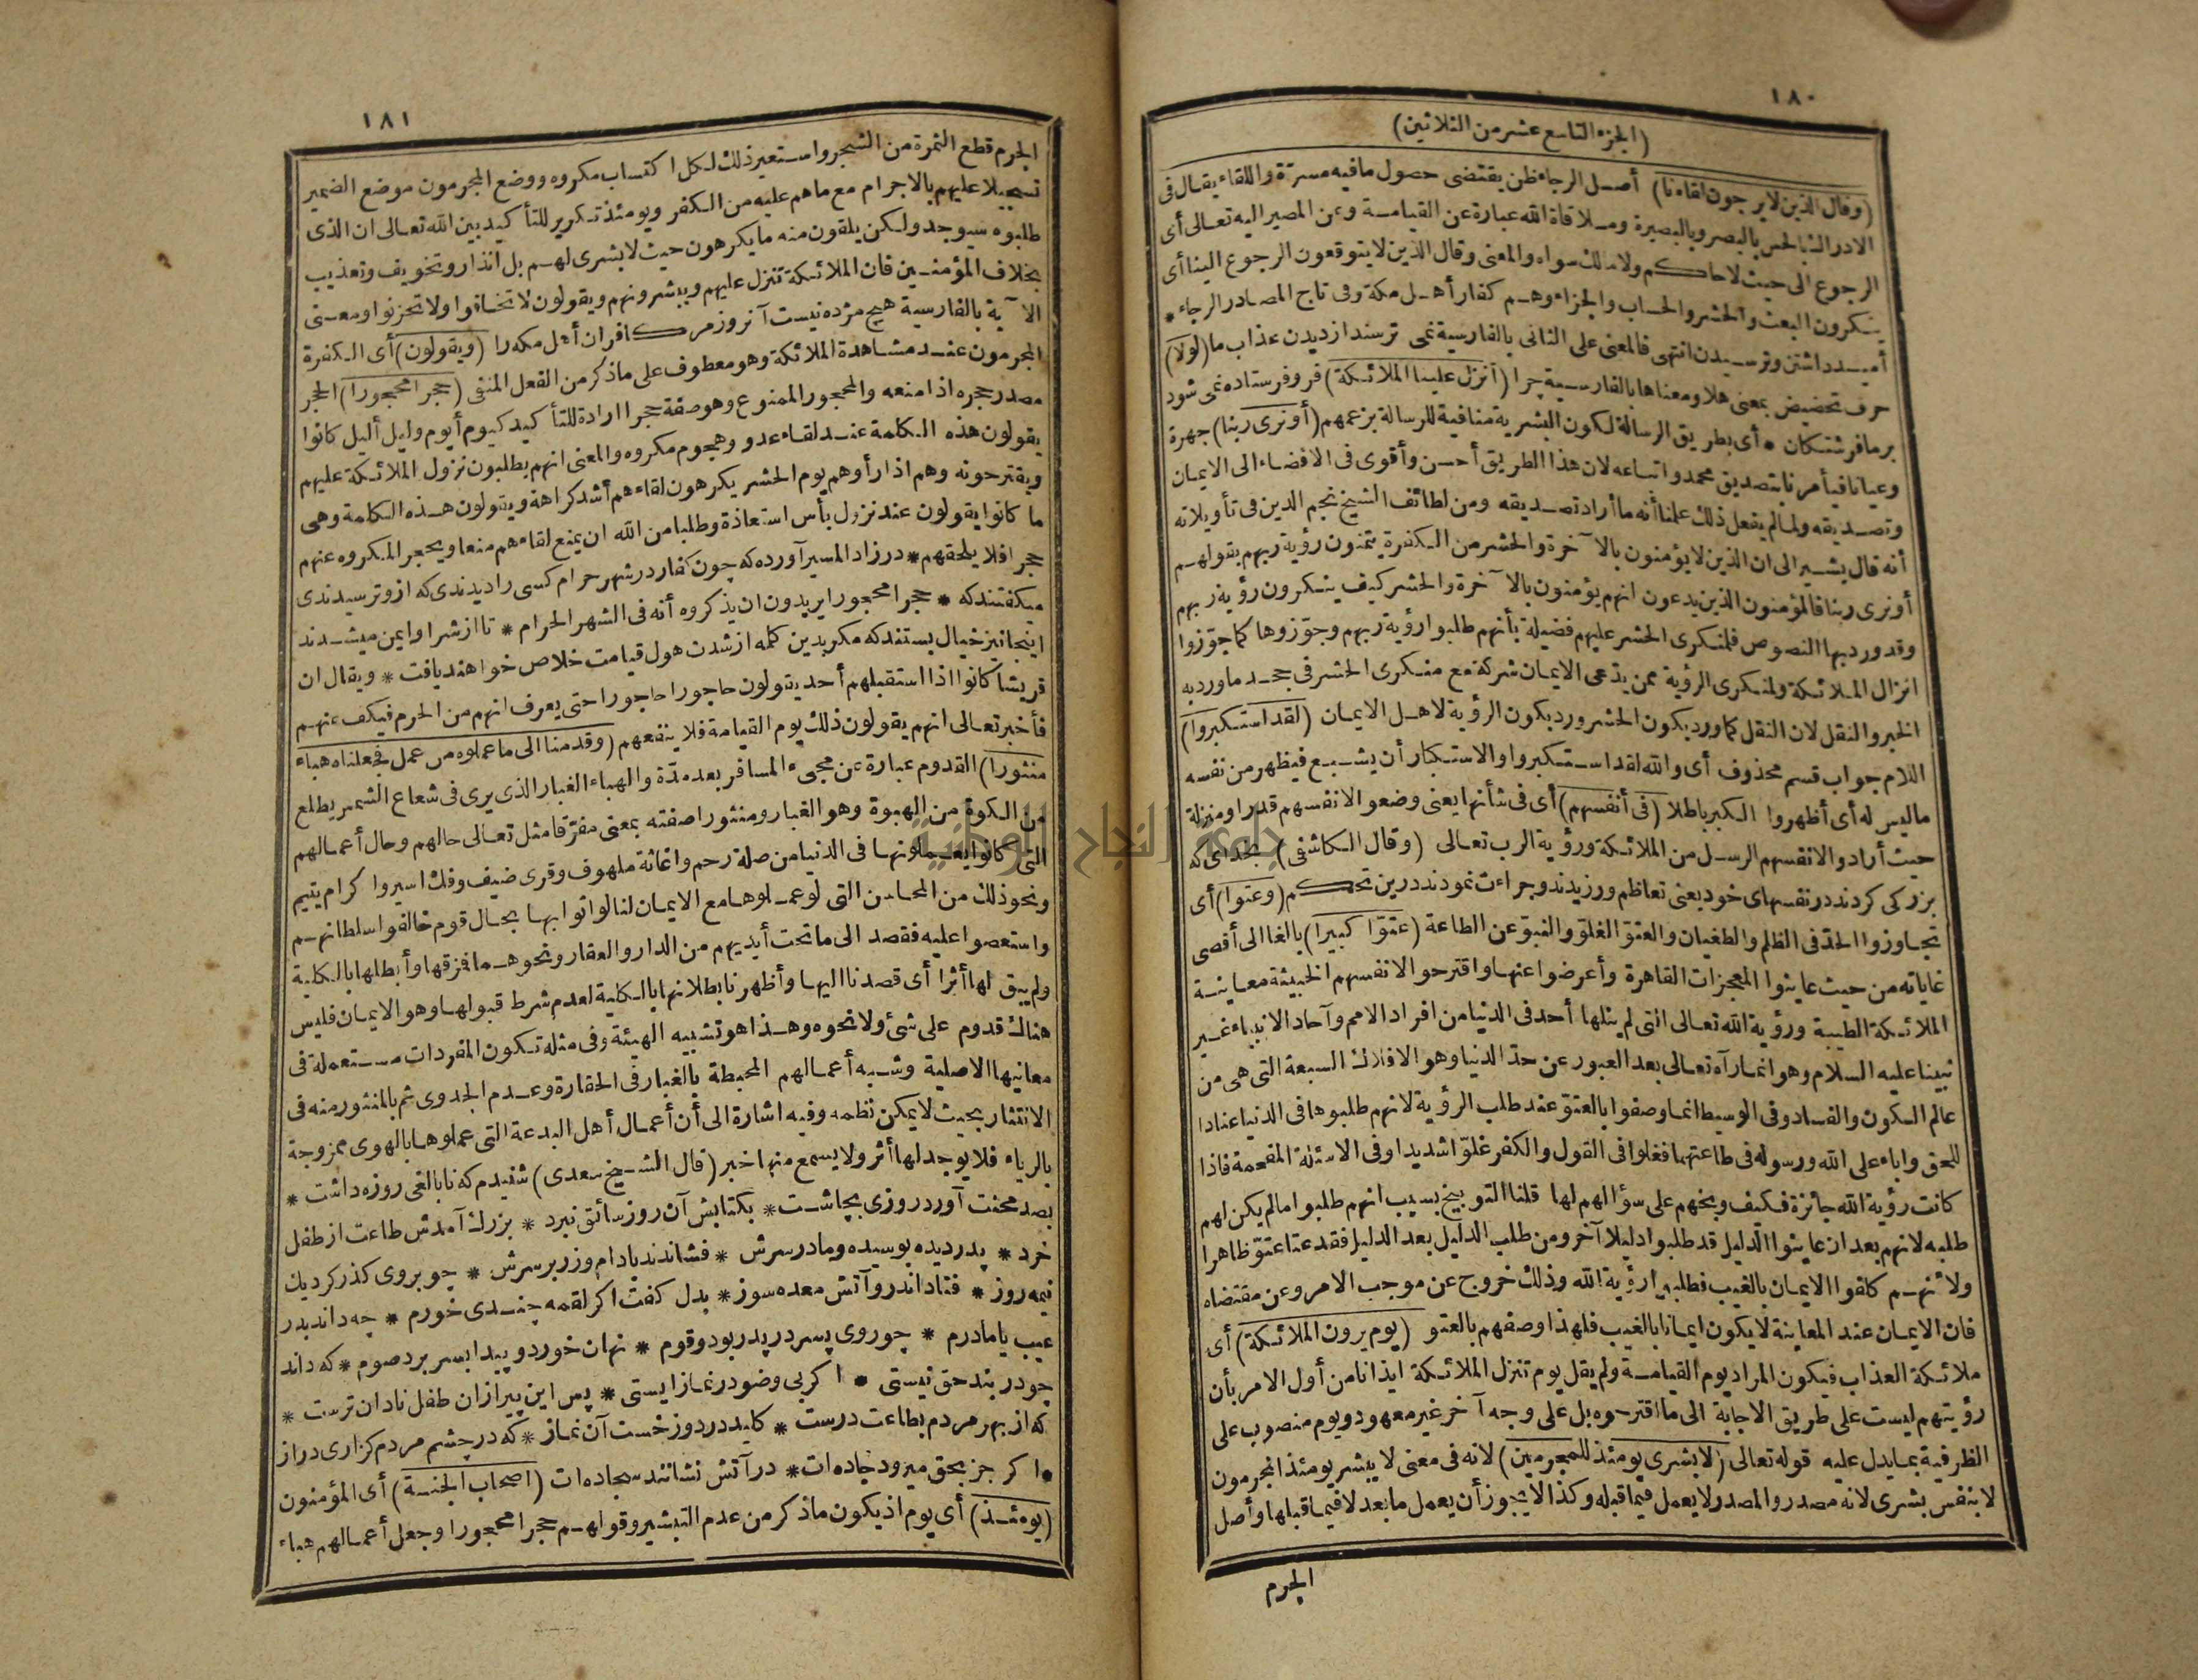 ١٨٠
(الجزء التاسع عشر من الثلاثين)
(وقال الذين لا يرجون لقاءنا) أصل الرجاء ظن يقتضى حصول ما فيه مسرة واللقاء يقال فى
الادراك بالحس بالبصر وبالبصيرة وملاقاة الله عبارة عن القيامة وعن المصير اليه تعالى أى
الرجوع الى حيث لا حاكم ولا مالك سواه والمعنى وقال الذين لا يتوقعون الرجوع الينا أى
ينكرون البعث والحشر والحساب والجزاء وهم كفار أهل مكة وفى تاج المصادر الرجاء *
أميد داشتن وترسيدن انتهى فالمعنى على الثانى بالفارسية نمى ترسند از ديدن عذاب ما (لولا)
حرف تحضيض بمعنى هلا ومعناها بالفارسية چرا (أنزل علينا الملائكة) فرو فرستاده نمى شود
بر ما فرشتكان * أى بطريق الرسالة لكون البشرية منافية للرسالة بزعمهم (أو نرى ربنا) جهرة
وعيانا فيأمرنا بتصديق محمد واتباعه لان هذا الطريق أحسن وأقوى فى الافضاء الى الايمان
وتصديقه ولما لم يفعل ذلك علمنا أنه ما أراد تصديقه ومن لطائف الشيخ نجم الدين فى تأويلاته
أنه قال يشير الى ان الذين لا يؤمنون بالآخرة والحشر من الكفرة يتمنون رؤية ربهم بقولهم
أو نرى ربنا فالمؤمنون الذين يدعون انهم يؤمنون بالآخرة والحشر كيف ينكرون رؤية ربهم
وقد ورد بها النصوص فلمنكرى الحشر عليهم فضيلة بأنهم طلبوا رؤية ربهم وجوّزوها كما جوّزوا
انزال الملائكة ولمنكرى الرؤية ممن يدّعى الايمان شركة مع منكرى الحشر فى جحد ما ورد به
الخبر والنقل لان النقل كما ورد بكون الحشر ورد بكون الرؤية لاهل الايمان (لقد استكبروا)
اللام جواب قسم محذوف أى والله لقد استكبروا والاستكبار أن يشبع فيظهر من نفسه
ما ليس له أى أظهروا الكبر باطلا (فى أنفسهم) أى فى شأنها يعنى وضعوا لانفسهم قدرا ومنزلة
حيث أرادوا لانفسهم الرسل من الملائكة ورؤية الرب تعالى (وقال الكاشفى) بخداى كه
بزركى كردند در نفسهاى خود يعنى تعاظم ورزيدند وجراءت نمودند درين تحكم (وعتوا) أى
تجاوزوا الحدّ فى الظلم والطغيان والعتوّ الغلوّ والنبوّ عن الطاعة (عتوّا كبيرا) بالغا الى أقصى
غاياته من حيث عاينوا المعجزات القاهرة وأعرضوا عنها واقترحوا لانفسهم الخبيثة معاينة
الملائكة الطيبة ورؤية الله تعالى التى لم ينلها أحد فى الدنيا من افراد الامم وآحاد الانبياء غير
نبينا عليه السلام وهو انما رآه تعالى بعد العبور عن حدّ الدنيا وهو الافلاك السبعة التى هى من
عالم الكون والفساد وفى الوسيط انما وصفوا بالعتوّ عند طلب الرؤية لانهم طلبوها فى الدنيا عنادا
للحق واباء على الله ورسوله فى طاعتهما فغلوا فى القول والكفر غلوّا شديدا وفى الاسئلة المقحمة فاذا
كانت رؤية الله جائزة فكيف وبخهم على سؤالهم لها قلنا التوبيخ بسبب انهم طلبوا ما لم يكن لهم
طلبه لانهم بعد ان عاينوا الدليل قد طلبوا دليلا آخر ومن طلب الدليل بعد الدليل فقد عتا عتوّا ظاهرا
ولانهم كلفوا الايمان بالغيب فطلبوا رؤية الله وذلك خروج عن موجب الامر وعن مقتضاه
فان الايمان عند المعاينة لا يكون ايمانا بالغيب فلهذا وصفهم بالعتو (يوم يرون الملائكة) أى
ملائكة العذاب فيكون المراد يوم القيامة ولم يقل يوم تنزل الملائكة ايذانا من أول الامر بأن
رؤيتهم ليست على طريق الاجابة الى ما اقترحوه بل على وجه آخر غير معهود ويوم منصوب على
الظرفية بما يدل عليه قوله تعالى (لا بشرى يومئذ للمجرمين) لانه فى معنى لا يبشر يومئذ المجرمون
لا بنفس بشرى لانه مصدر والمصدر لا يعمل فيما قبله وكذا لا يجوز أن يعمل ما بعد لا فيما قبلها وأصل
الجرم
١٨١
الجرم قطع الثمرة من الشجر واستعير ذلك لكل اكتساب مكروه ووضع المجرمون موضع الضمير
تسجيلا عليهم بالاجرام مع ما هم عليه من الكفر ويومئذ تكرير للتأكيد بين الله تعالى ان الذى
طلبوه سيوجد ولكن يلقون منه ما يكرهون حيث لا بشرى لهم بل انذار وتخويف وتعذيب
بخلاف المؤمنين فان الملائكة تنزل عليهم ويبشرونهم ويقولون لا تخافوا ولا تحزنوا ومعنى
الآية بالفارسية هيچ مژده نيست آنروز مركافران أهل مكه را (ويقولون) أى الكفرة
المجرمون عند مشاهدة الملائكة وهو معطوف على ما ذكر من الفعل المنفى (حجرا محجورا) الحجر
مصدر حجره اذا منعه والمحجور الممنوع وهو صفة حجرا ارادة للتأكيد كيوم أيوم وليل أليل كانوا
يقولون هذه الكلمة عند لقاء عدو وهجوم مكروه والمعنى انهم يطلبون نزول الملائكة عليهم
ويقترحونه وهم اذا رأوهم يوم الحشر يكرهون لقاءهم أشد كراهة ويقولون هذه الكلمة وهى
ما كانوا يقولون عند نزول بأس استعاذة وطلبا من الله ان يمنع لقاءهم منعا ويحجر المكروه عنهم
حجرا فلا يلحقهم * در زاد المسير آورده كه چون كفار در شهر حرام كسى را ديدندى كه ازو ترسيدندى
ميكفتند كه * حجرا محجورا يريدون ان يذكروه أنه فى الشهر الحرام * تا از شر او ايمن ميشدند
اينجا نيز خيال بستند كه مكر بدين كلمه از شدت هول قيامت خلاص خواهند يافت * ويقال ان
قريشا كانوا اذا استقبلهم أحد يقولون حاجورا حاجورا حتى يعرف انهم من الحرم فيكف عنهم
فأخبر تعالى انهم يقولون ذلك يوم القيامة فلا ينفعهم (وقدمنا الى ما عملوا من عمل فجعلناه هباء
منثورا) القدوم عبارة عن مجىء المسافر بعد مدّة والهباء الغبار الذى يرى فى شعاع الشمس يطلع
من الكوة من الهبوة وهو الغبار ومنثورا صفته بمعنى مفرّقا مثل تعالى حالهم وحال أعمالهم
التى كانوا يعملونها فى الدنيا من صلة رحم واغاثة ملهوف وقرى ضيف وفك اسير واكرام يتيم
ونحو ذلك من المحاسن التى لو عملوها مع الايمان لنالوا ثوابها بحال قوم خالفوا سلطانهم
واستعصوا عليه فقصد الى ما تحت أيديهم من الدار والعقار ونحوهما فمزقها وأبطلها بالكلية
ولم يبق لها أثرا أى قصدنا اليها وأظهرنا بطلانها بالكلية لعدم شرط قبولها وهو الايمان فليس
هناك قدوم على شئ ولا نحوه وهذا هو تشبيه الهيئة وفى مثله تكون المفردات مستعملة فى
معانيها الاصلية وشبه أعمالهم المحبطة بالغبار فى الحقارة وعدم الجدوى ثم بالمنثور منه فى
الانتثار بحيث لا يمكن نظمه وفيه اشارة الى أن أعمال أهل البدعة التى عملوها بالهوى ممزوجة
بالرياء فلا يوجد لها أثر ولا يسمع منها خبر (قال الشيخ سعدى) شنيدم كه نابالغى روزه داشت *
بصد محنت آورد روزى بچاشت * بكتابش آن روز سائق نبرد * بزرك آمدش طاعت از طفل
خرد * پدر ديده بوسيد ومادر سرش * فشاندند بادام وزر بر سرش * چو بروى كذر كرد يك
نيمه روز * فتاد اندرو آتش معده سوز * بدل كفت اكر لقمه چندى خورم * چه داند پدر
عيب يا مادرم * چو روى پسر در پدر بود وقوم * نهان خورد وپيدا بسر برد صوم * كه داند
چو در بند حق نيستى * اكر بى وضو در نماز ايستى * پس اين پير ازان طفل نادان ترست *
كه از بهر مردم بطاعت درست * كليد در دوزخست آن نماز * كه در چشم مردم كزارى دراز
* اكر جز بحق ميرود جاده ات * در آتش نشانند سجاده ات (اصحاب الجنة) أى المؤمنون
(يومئذ) أى يوم اذ يكون ما ذكر من عدم التبشير وقولهم حجرا محجورا وجعل أعمالهم هباء
جامعة النجاح الوطنية